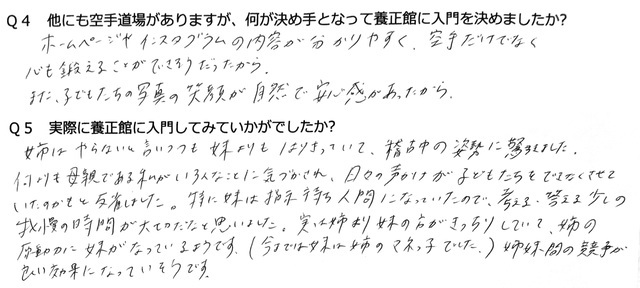 Q4 他にも空手道場がありますが、何が決め手となって養正館に入門を決めましたか?
ホームページやインスタグラムの内容が分かりやすく、空手だけでなく
心も鍛えることができそうだったから。
また、子どもたちの写真の笑顔が自然で安心感があったから。
Q5 実際に養正館に入門してみていかがでしたか?
姉はやらないと言いつつも妹よりもはりきっていて、稽古中の姿勢に驚きました。
何よりも母親である私がいろんなことに気づかされ、日々の声かけが子どもたちをできなくさせて
いたのかもと反省しました。特に妹は指示待ち人間になっていたので、考える、答える少しの
我慢の時間が大せつだなと思いました。実は姉より妹の方がきっちりしていて、姉の
原動力に妹がなっているようです。(今までは妹は姉のマネっ子でした。)姉妹間の競争が
良い効果になっていそうです。